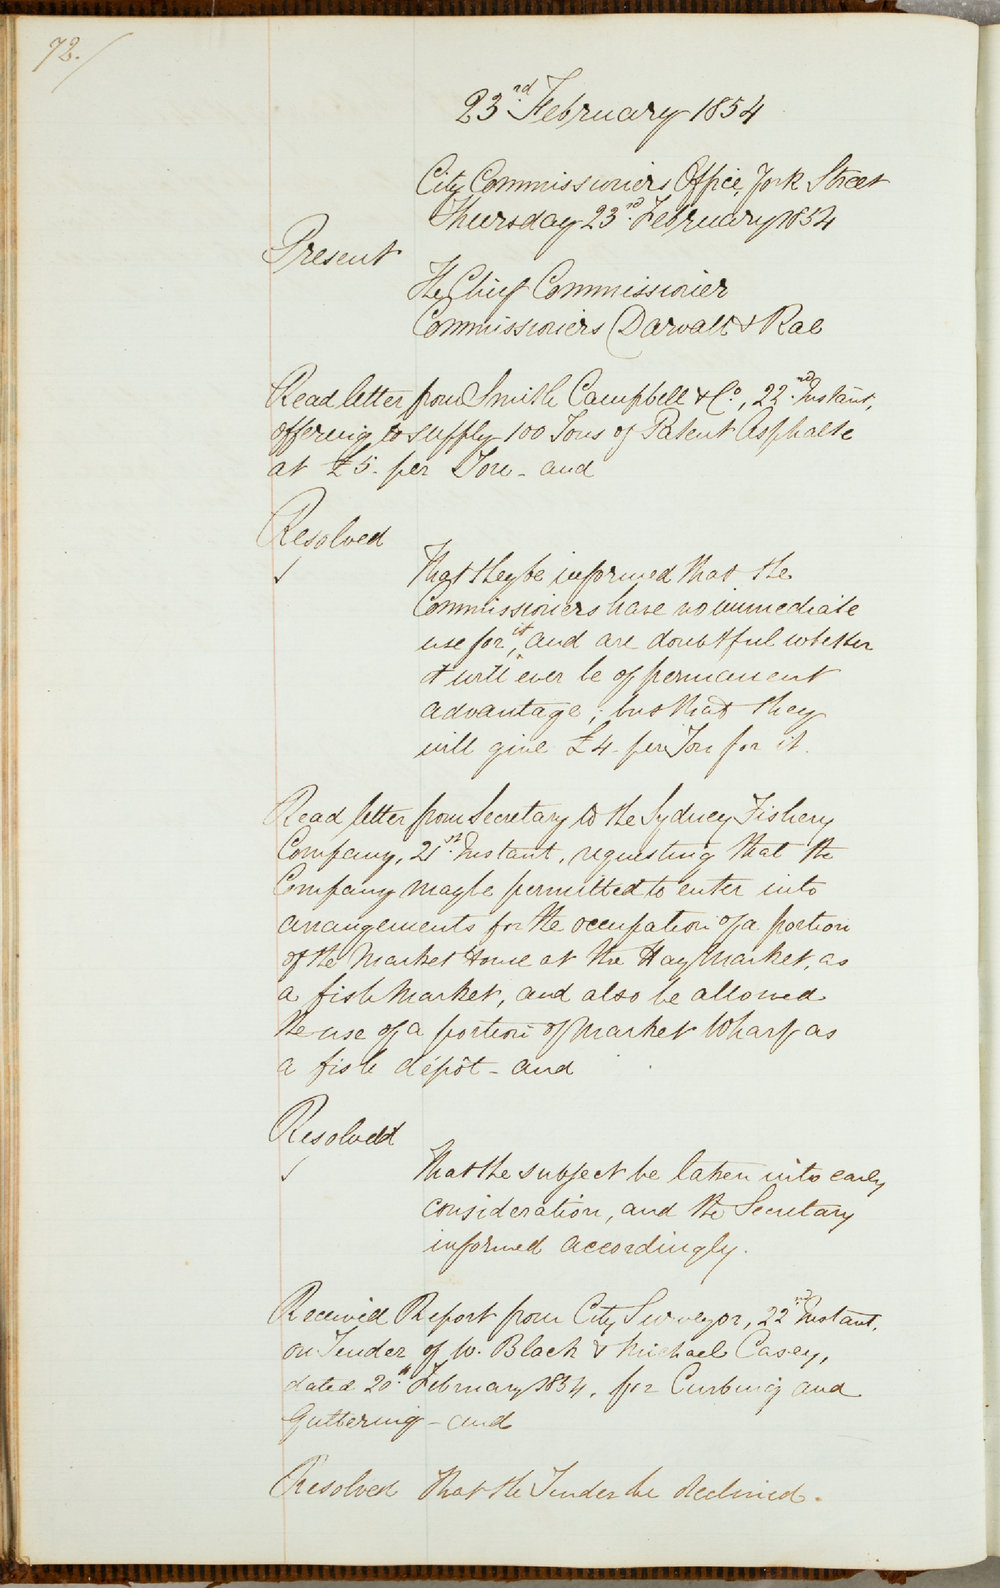 72.
23rd February 1854
City Commissioners Office, York Street
Thursday 23rd February 1854
Present
The Chief Commissioner
Commissioners Darvall & Rae
Read letter from Smith Campbell & Co., 22nd Instant,
offering to supply 100 Tons of Patent Asphalte
at £5. per Ton - and
Resolved
That they be informed that the
Commissioners have no immediate
use for it, and are doubtful whether
it will ever be of permanent
advantage; but that they
will give £4. per Ton for it.
Read letter from Secretary to the Sydney Fishery
Company, 21st Instant, requesting that the
Company may be permitted to enter into
arrangements for the occupation of a portion
of the Market House at the Hay Market, as
a fish Market, and also be allowed
the use of a portion of Market Wharf as
a fish dépôt - and
Resolved
That the subject be taken into early
consideration, and the Secretary
informed accordingly.
Received Report from City Surveyor, 22nd Instant,
on Tender of W. Black & Michael Casey,
dated 20th February 1854, for Curbing and
Guttering - and
Resolved That the Tender be declined.